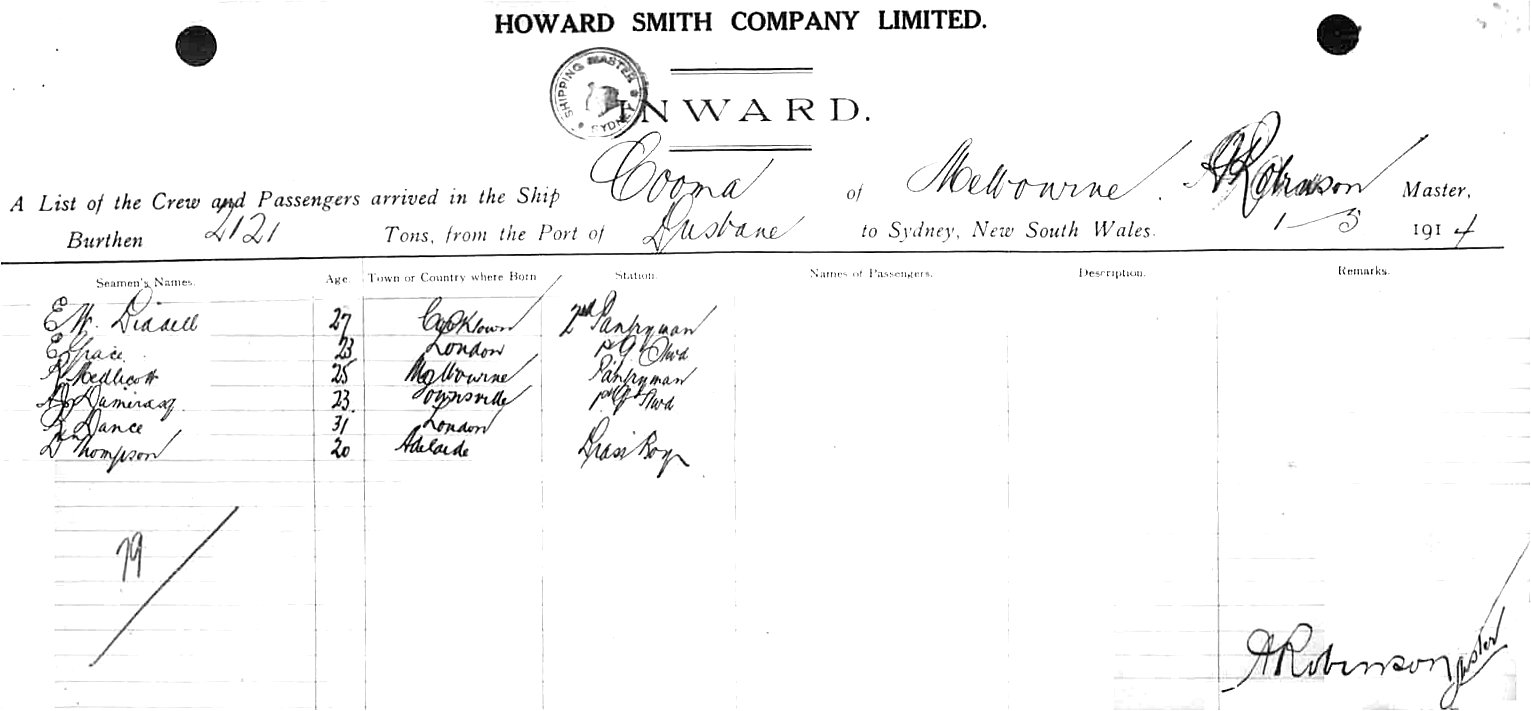 HOWARD SMITH COMPANY LIMITED.
SHIPPING MASTER SYDNEY
INWARD.
A List of the Crew and Passengers arrived in the Ship Cooma of Melbourne. A Robinson Master,
Burthen 2121 Tons, from the Port of Brisbane to Sydney, New South Wales. 1-5 1914
Seamen's Names. Age. Town or Country where Born Station. Names of Passengers. Description. Remarks.
E W. 27 Cooktown 2nd Pantryman
E Grace 23 London
Medlicott 25 Melbourne Pantryman
23 Townsville
Dance 31 London
Thompson 20 Adelaide Boy
79
A Robinson Master